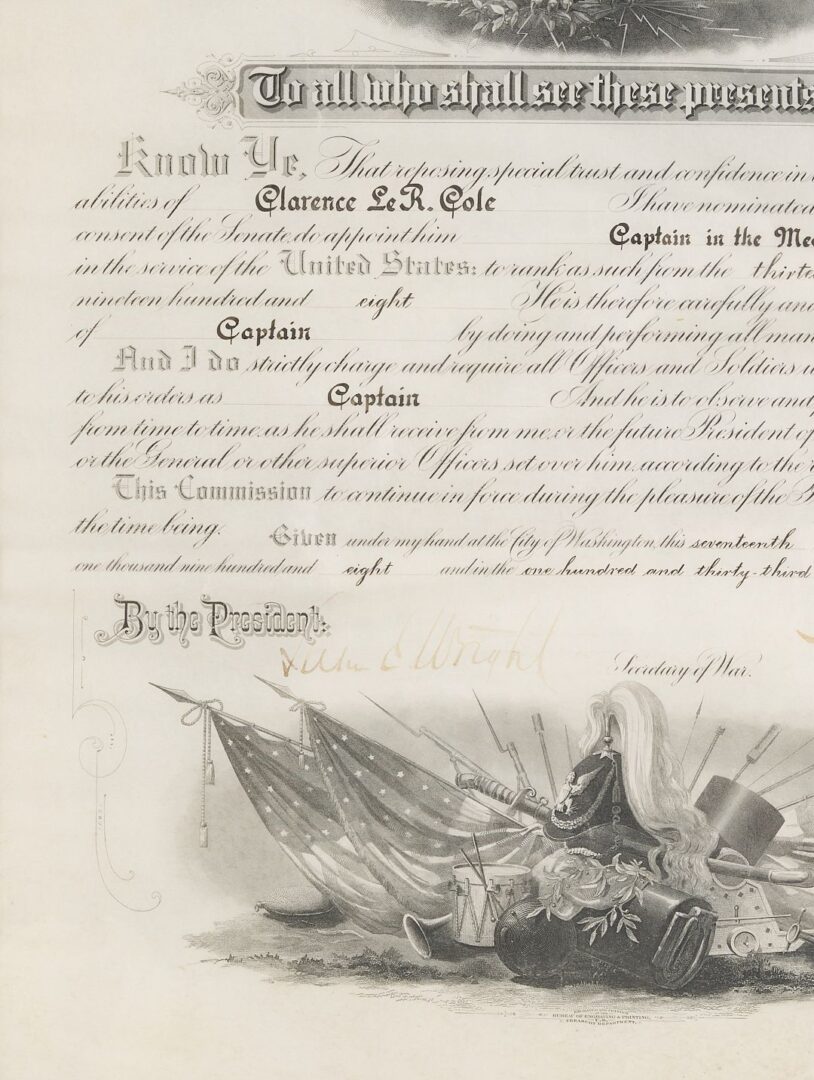 To all who shall see these presents
Know Ye, That reposing special trust and confidence in
abilities of Clarence Le R. Cole I have nominated
consent of the Senate, do appoint him Captain in the Med
in the service of the United States: to rank as such from the thirte
nineteen hundred and eight He is therefore carefully and
of Captain by doing and performing all man
And I do strictly charge and require all Officers and Soldiers u
to his orders as Captain And he is to observe and
from time to time, as he shall receive from me, or the future President of
or the General or other superior Officers set over him, according to the r
This Commission to continue in force during the pleasure of the P
the time being.
Given under my hand at the City of Washington, this seventeenth
one thousand nine hundred and eight and in the one hundred and thirty-third
By the President:
Luke E Wright
Secretary of War.
BUREAU OF ENGRAVING & PRINTING,
U.S.
TREASURY DEPARTMENT.